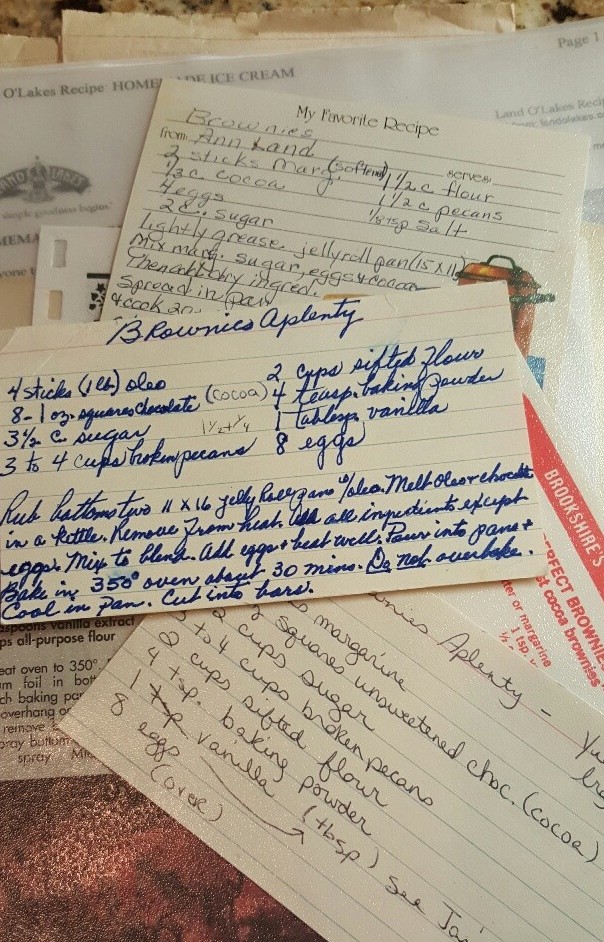 Page 1
O'Lakes Recipe: HOMEMADE ICE CREAM
Land O'Lakes Recip
LAND O LAKES
simple goodness begins.
My Favorite Recipe
Brownies
from: Ann Land
serves:
2 sticks Marg. (softened)
1 1/2 c flour
c. cocoa
1 1/2 c pecans
4 eggs
1/8 tsp salt
2 c. sugar
lightly grease jellyroll pan (15 x 11)
Mix marg. sugar, eggs & cocoa
Then add dry ingred.
Spread in pan
& cook 20
Brownies Aplenty
4 sticks (1 lb) oleo
2 cups sifted flour
8 - 1 oz. squares chocolate (cocoa)
4 teasp. baking powder
3 1/2 c. sugar
1 1/2 + 1/4
1 Tablesp. vanilla
3 to 4 cups broken pecans
8 eggs
Rub bottoms two 11 x 16 jelly roll pans w/oleo. Melt oleo & chocolate
in a kettle. Remove from heat. Add all ingredients except
eggs. Mix to blend. Add eggs & beat well. Pour into pans &
Bake in 350° oven about 30 mins. Do not overbake.
Cool in pan. Cut into bars.
BROOKSHIRE'S
PERFECT BROWNIE
cocoa brownies
ter or margarine
1 tsp
aspoons vanilla extract
ps all-purpose flour
eat oven to 350°.
m foil in bott
ch baking pa
overhang o
remove
pray bottom
spray
nies Aplenty -
margarine
2 squares unsweetened choc. (cocoa)
2 cups sugar
3 to 4 cups broken pecans
2 cups sifted flour
4 tsp. baking powder
1 tsp vanilla (tbsp) see
8 eggs
(over)